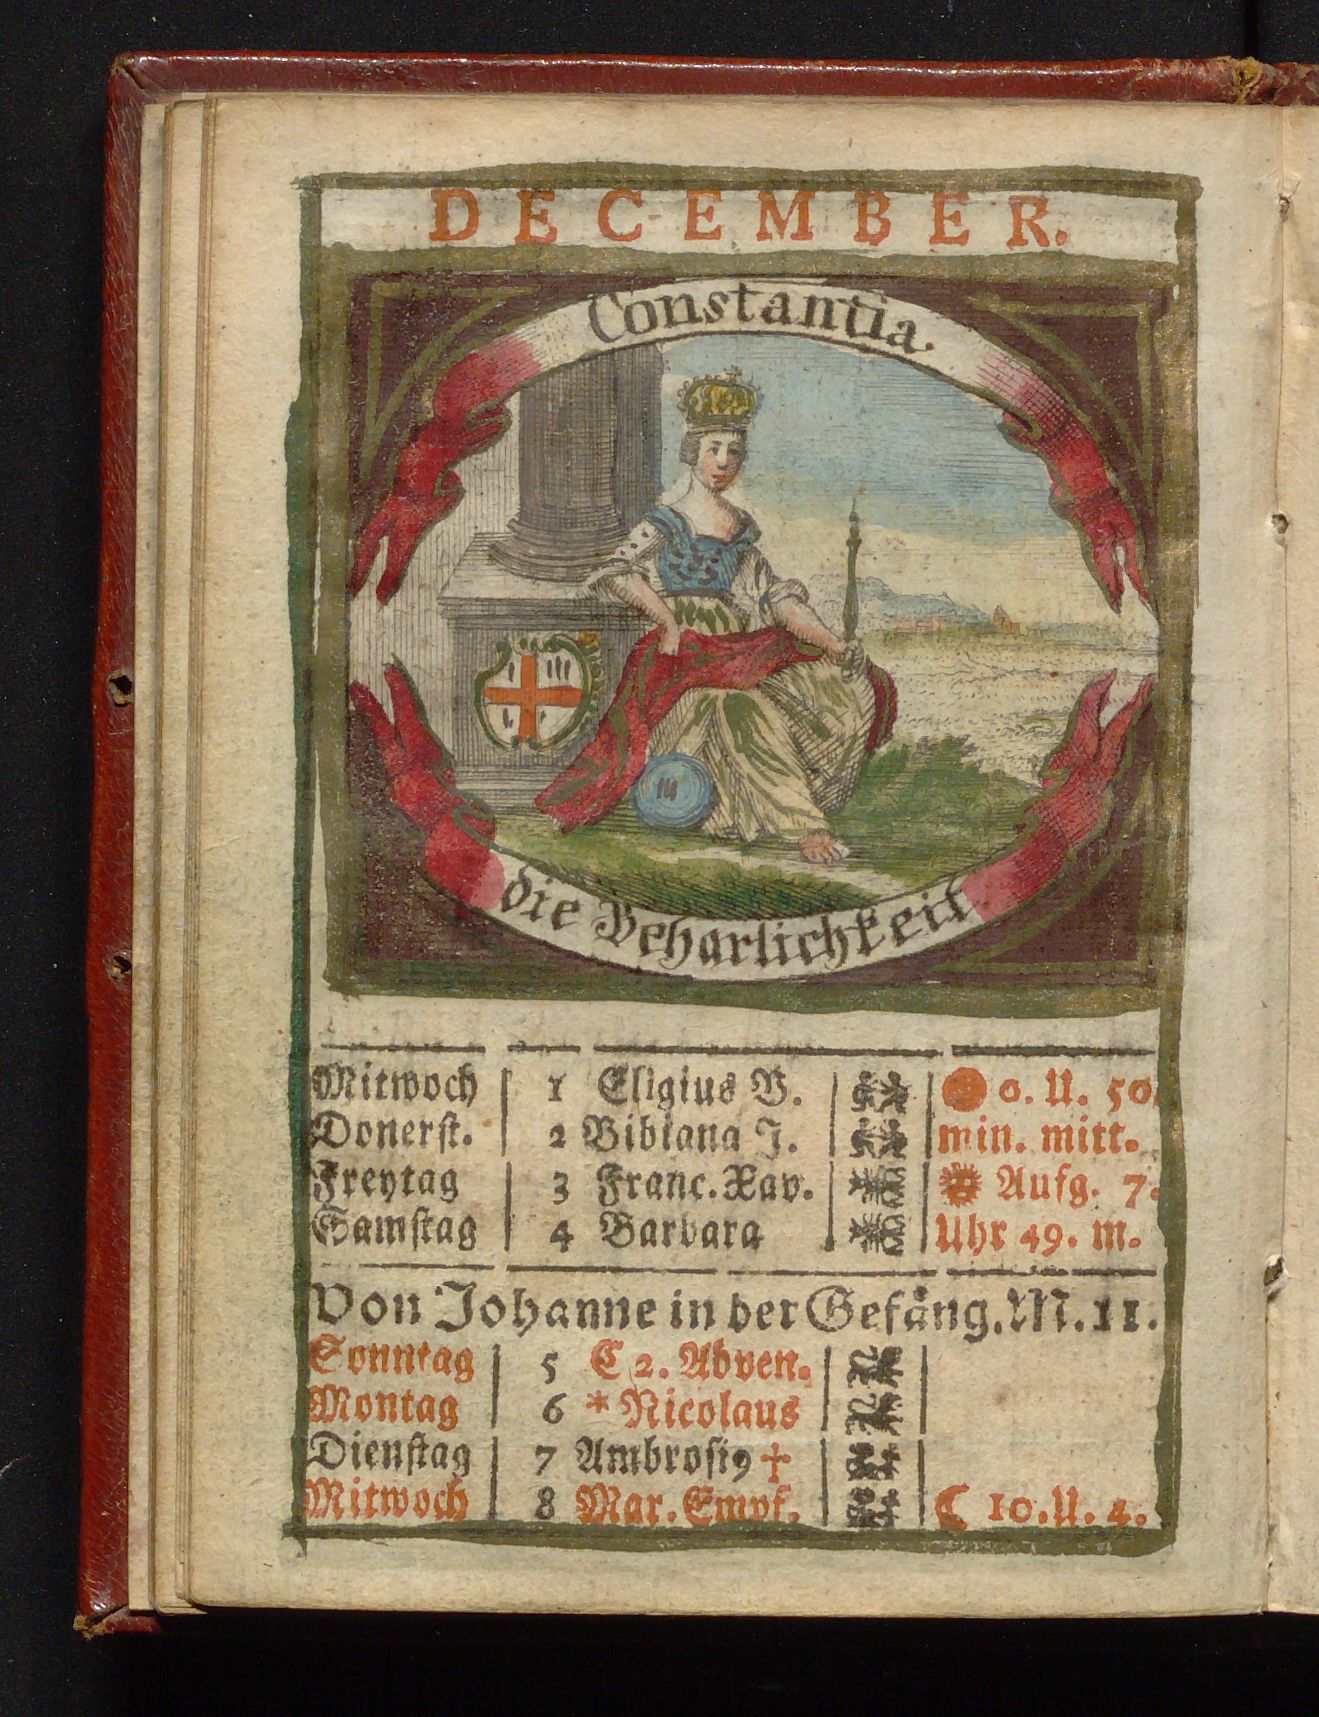 DECEMBER.
Constantia.
die Beharlichkeit.
Mitwoch 1 Eligius B. 0. U. 50.
Donerst. 2 Bibiana J. min. mitt.
Freytag 3 Franc. Xav. Aufg. 7.
Samstag 4 Barbara Uhr 49. m.
Von Johanne in der Gefäng. M. 11.
Sonntag 5 C 2. Adven.
Montag 6 * Nicolaus
Dienstag 7 Ambrosi9 †
Mitwoch 8 Mar. Empf. ☾ 10. U. 4.